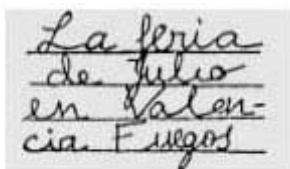 La feria
de Julio
en Valen-
cia. Fuegos